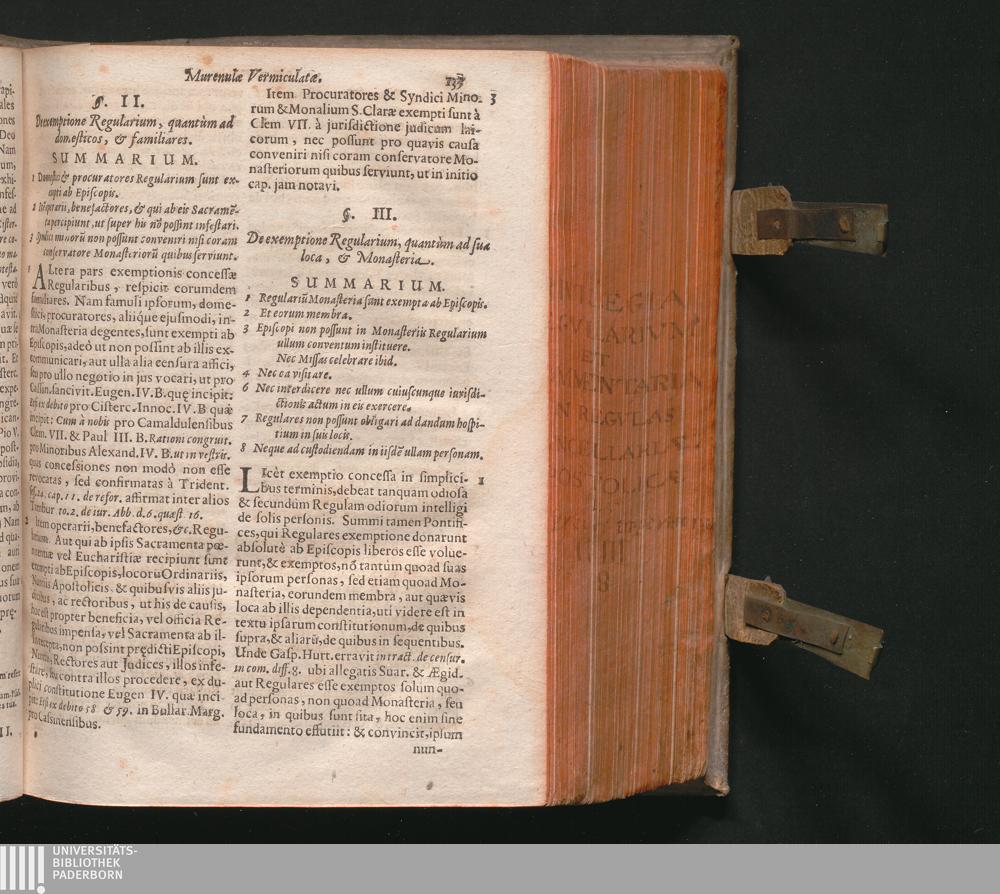 Murenulæ Vermiculatæ.
§. II.
De exemptione Regularium, quantùm ad
domesticos, & familiares.
SUMMARIUM.
1 Domestici & procuratores Regularium sunt ex-
empti ab Episcopis.
operarii, benefactores, & qui ab eis Sacramē-
ta percipiunt, ut super his nō possint infestari.
3 Syndici minorū non possunt conveniri nisi coram
conservatore Monasteriorū quibus serviunt.
1 ALtera pars exemptionis concessæ
Regularibus, respicit eorumdem
familiares. Nam famuli ipsorum, dome-
stici, procuratores, aliique ejusmodi, in-
tra Monasteria degentes, sunt exempti ab
Episcopis, adeò ut non possint ab illis ex-
communicari, aut ulla alia censura affici,
seu pro ullo negotio in jus vocari, ut pro
Cassin. sancivit. Eugen. IV. B. quę incipit:
Etsi ex debito pro Cisterc. Innoc. IV. B quæ
incipit: Cum à nobis pro Camaldulensibus
Clem. VII. & Paul III. B. Rationi congruit.
pro Minoribus Alexand. IV. B. ut in vestris.
quas concessiones non modò non esse
revocatas, sed confirmatas à Trident.
cap. 11. de refor. affirmat inter alios
Tambur to. 2. de iur. Abb. d. 6. quæst. 16.
2 Item operarii, benefactores, &c. Regu-
larium. Aut qui ab ipsis Sacramenta pœ-
nitentiæ vel Eucharistiæ recipiunt sunt
exempti ab Episcopis, locorū Ordinariis,
Nuntiis Apostolicis, & quibusvis aliis ju-
dicibus, ac rectoribus, ut his de causis,
hoc est propter beneficia, vel officia Re-
gularibus impensa, vel Sacramenta ab il-
lis recepta, non possint prędicti Episcopi,
Nuntii, Rectores aut Judices, illos infe-
stare, seu contra illos procedere, ex du-
plici constitutione Eugen IV. quæ inci-
pit: Etsi ex debito 58 & 59. in Bullar. Marg.
pro Cassinensibus.
Item Procuratores & Syndici Mino- 3
rum & Monalium S. Claræ exempti sunt à
Clem VII. à jurisdictione judicum lai-
corum, nec possunt pro quavis causa
conveniri nisi coram conservatore Mo-
nasteriorum quibus serviunt, ut in initio
cap. jam notavi.
§. III.
De exemptione Regularium, quantùm ad sua
loca, & Monasteria.
SUMMARIUM.
1 Regulariū Monasteria sunt exempta ab Episcopis.
2 Et eorum membra.
3 Episcopi non possunt in Monasteriis Regularium
ullum conventum instituere.
Nec Missas celebrare ibid.
4 Nec ea visitare.
6 Nec interdicere nec ullum cuiuscunque iurisdi-
ctionis actum in eis exercere.
7 Regulares non possunt obligari ad dandum hospi-
tium in suis locis.
8 Neque ad custodiendam in iisdē ullam personam.
LIcèt exemptio concessa in simplici- 1
bus terminis, debeat tanquam odiosa
& secundùm Regulam odiorum intelligi
de solis personis. Summi tamen Pontifi-
ces, qui Regulares exemptione donarunt
absolutè ab Episcopis liberos esse volue-
runt, & exemptos, nō tantùm quoad suas
ipsorum personas, sed etiam quoad Mo-
nasteria, eorundem membra, aut quævis
loca ab illis dependentia, uti videre est in
textu ipsarum constitutionum, de quibus
supra, & aliarū, de quibus in sequentibus.
Unde Gasp. Hurt. erravit in tract. de censur.
in com. diff. 8. ubi allegatis Suar. & Ægid.
aut Regulares esse exemptos solum quo-
ad personas, non quoad Monasteria, seu
loca, in quibus sunt sita, hoc enim sine
fundamento effutiit: & convincit, ipsum
nun-
ET
REGULAS
UNIVERSITÄTS-
BIBLIOTHEK
PADERBORN